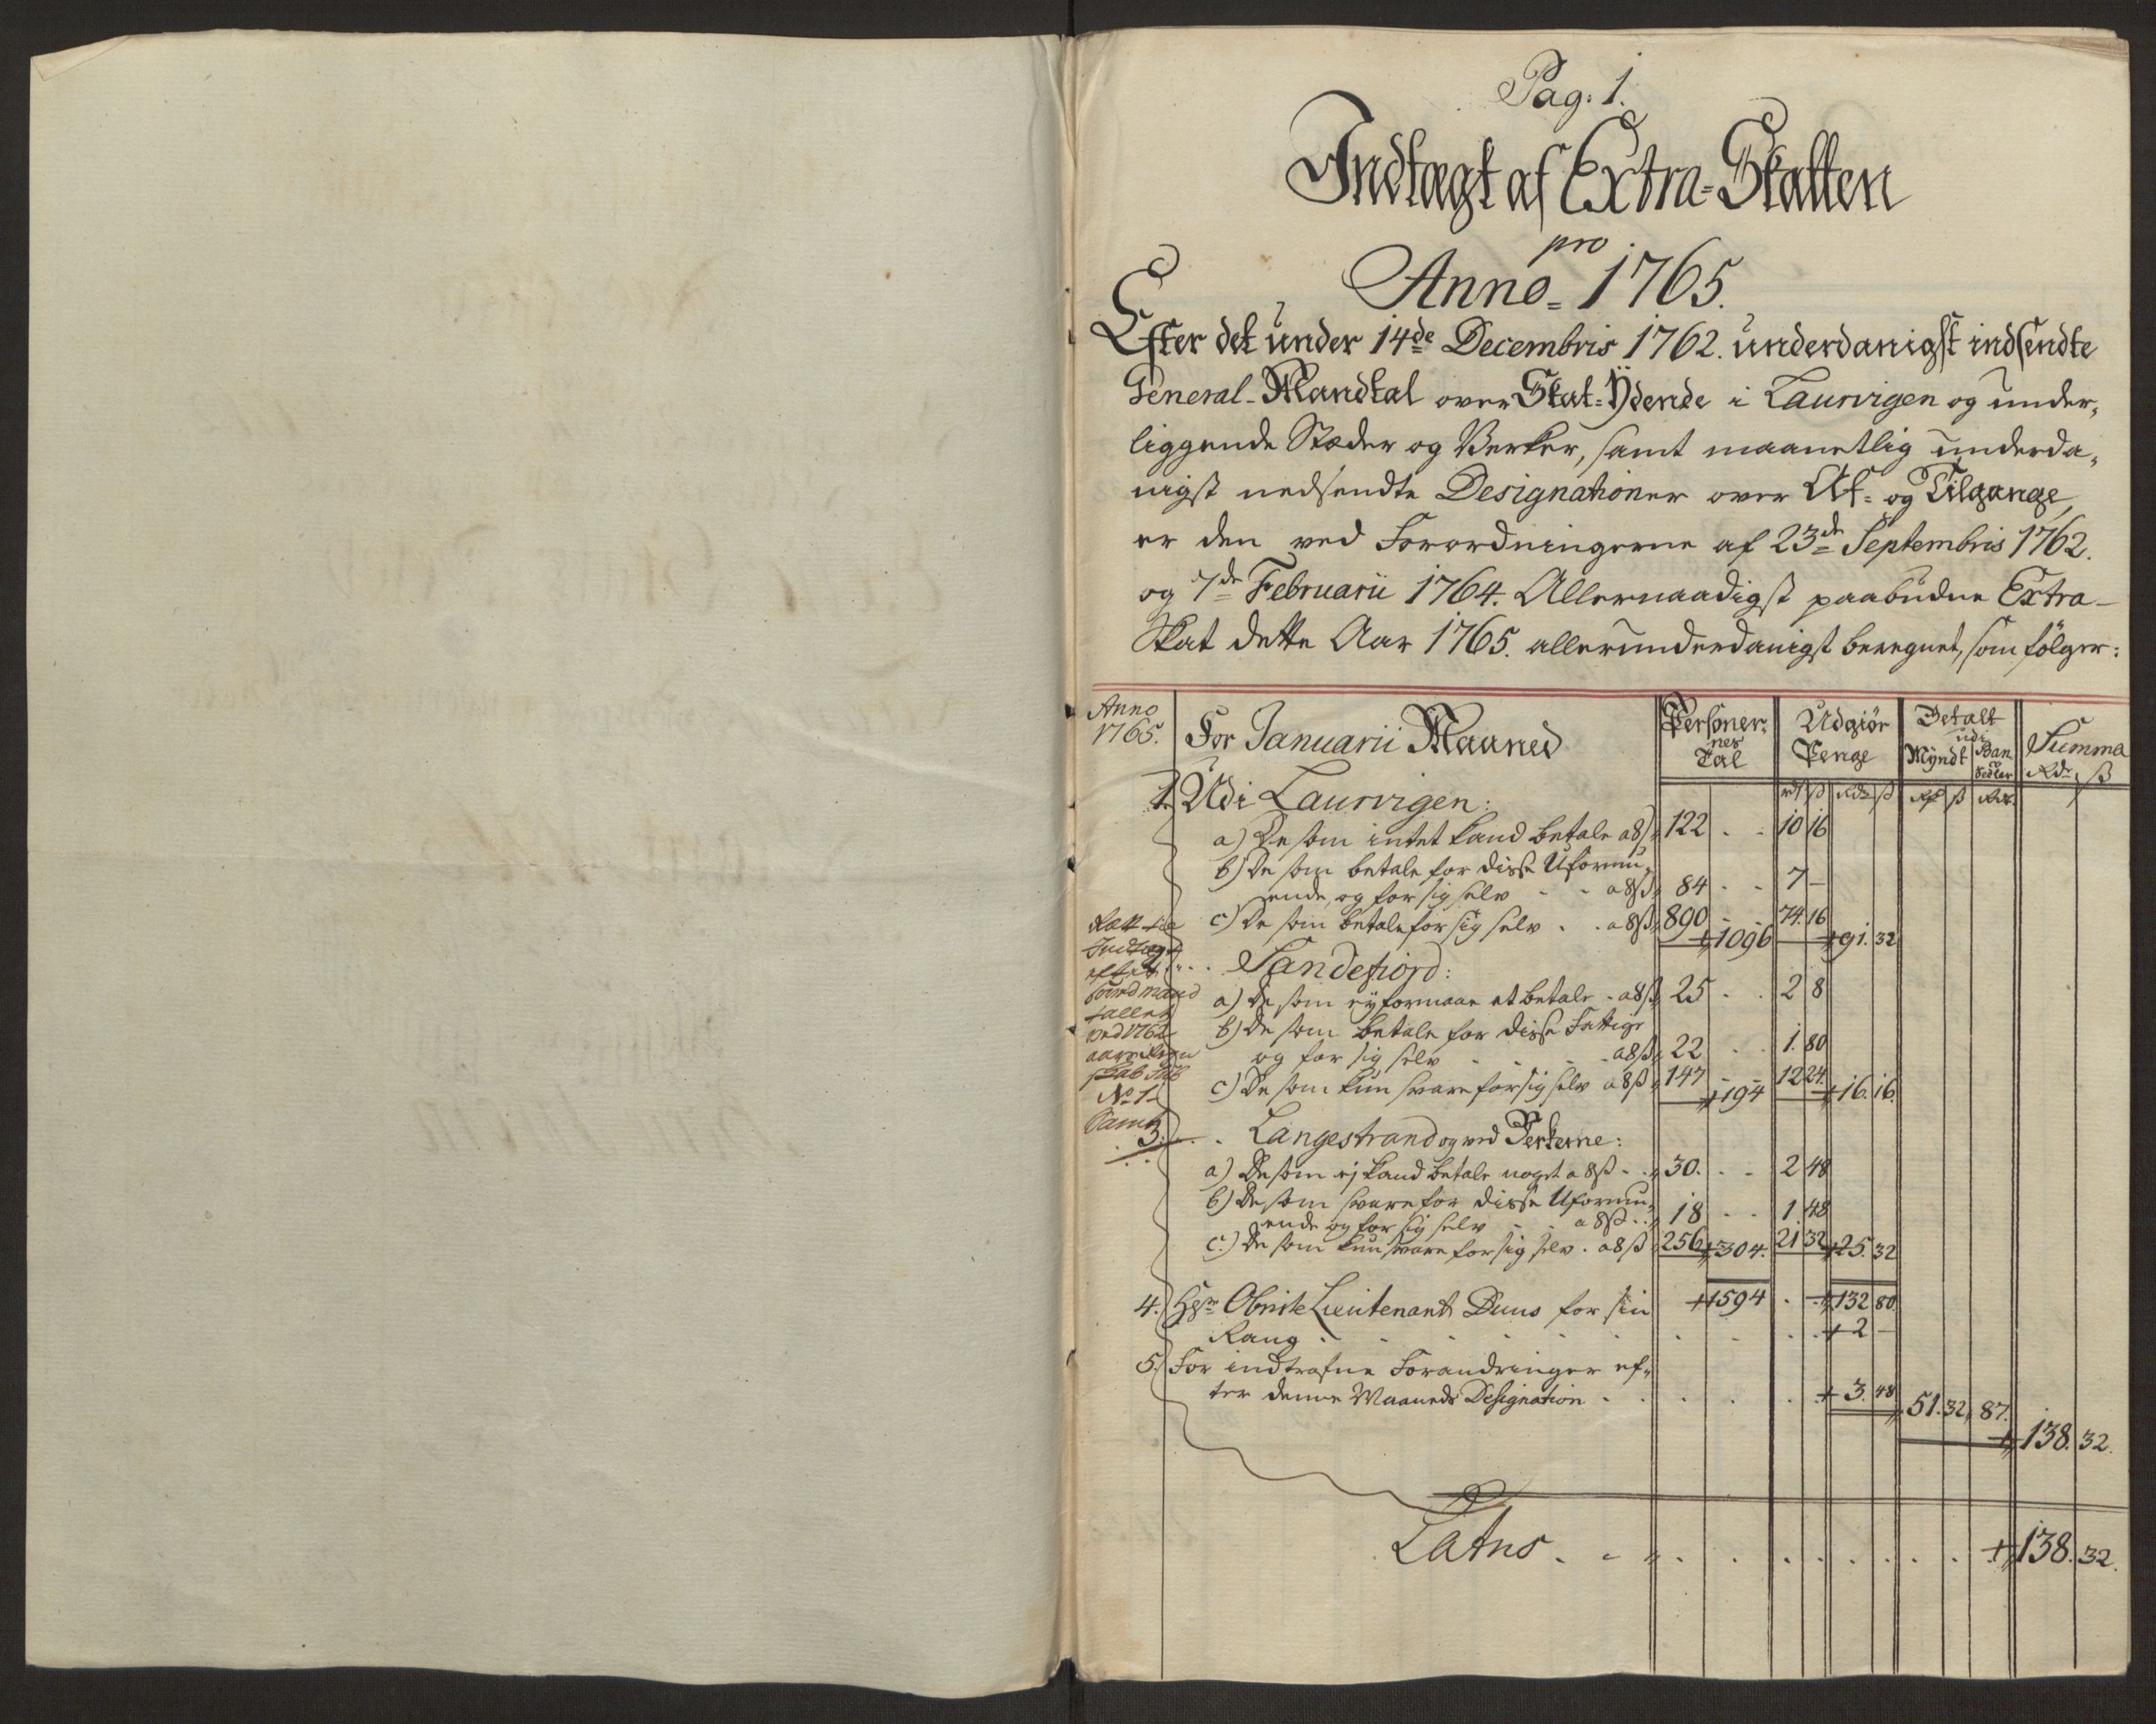 Pag: 1.
Indtægt af Extra-Skatten
pro
Anno 1765.
Efter det under 14de Decembris 1762. underdanigst indsendte
General-Mandtal over Skat-Ydende i Laurvigen og under-
liggende Stæder og Verker, samt maanetlig underda-
nigst nedsendte Designationer over Af- og Tilgange,
er den ved Forordningerne af 23de Septembris 1762.
og 7de Februarii 1764. Allernaadigst paabudne Extra-
Skat dette Aar 1765. allerunderdanigst beregnet, som følger:
Anno 1765. For Januarii Maaned Personer-nes Tal Udgiør Penge Betalt udi Myndt Banco Sedler Summa
Rdr ß
1. Udi Laurvigen:
a) De som intet kand betale a 8ß 122 10 16
b) De som betale for disse Uformu-
ende, og for sig selv a 8ß 84 7 -
c) De som betale for sig selv a 8ß 890 1096 74. 16 91. 32
Sandefiord:
a) De som ey formaar at betale a 8ß 25 2 8
b) De som betale for disse Fattige
og for sig selv a 8ß 22 1. 80
c) De som kun svare for sig selv a 8ß 147 194 12 24 16. 16.
3. Langestrand og ved Verkerne:
a) De som ej kand betale noget a 8ß 30. 2 48
b) De som svare for disse Uformu-
ende og for sig selv a 8ß 18 1. 48
c.) De som kun svare for sig selv a 8ß 256 304. 21 32 25. 32
1594 132 80
4. Hr Obriste Lieutenant Duus for sin
Rang 2 -
5. For indtrafne Forandringer ef-
ter denne Maaneds Designation 3. 48 51. 32 87.
138. 32.
Latus 138. 32.
Indtægt
ved 1762
No 1